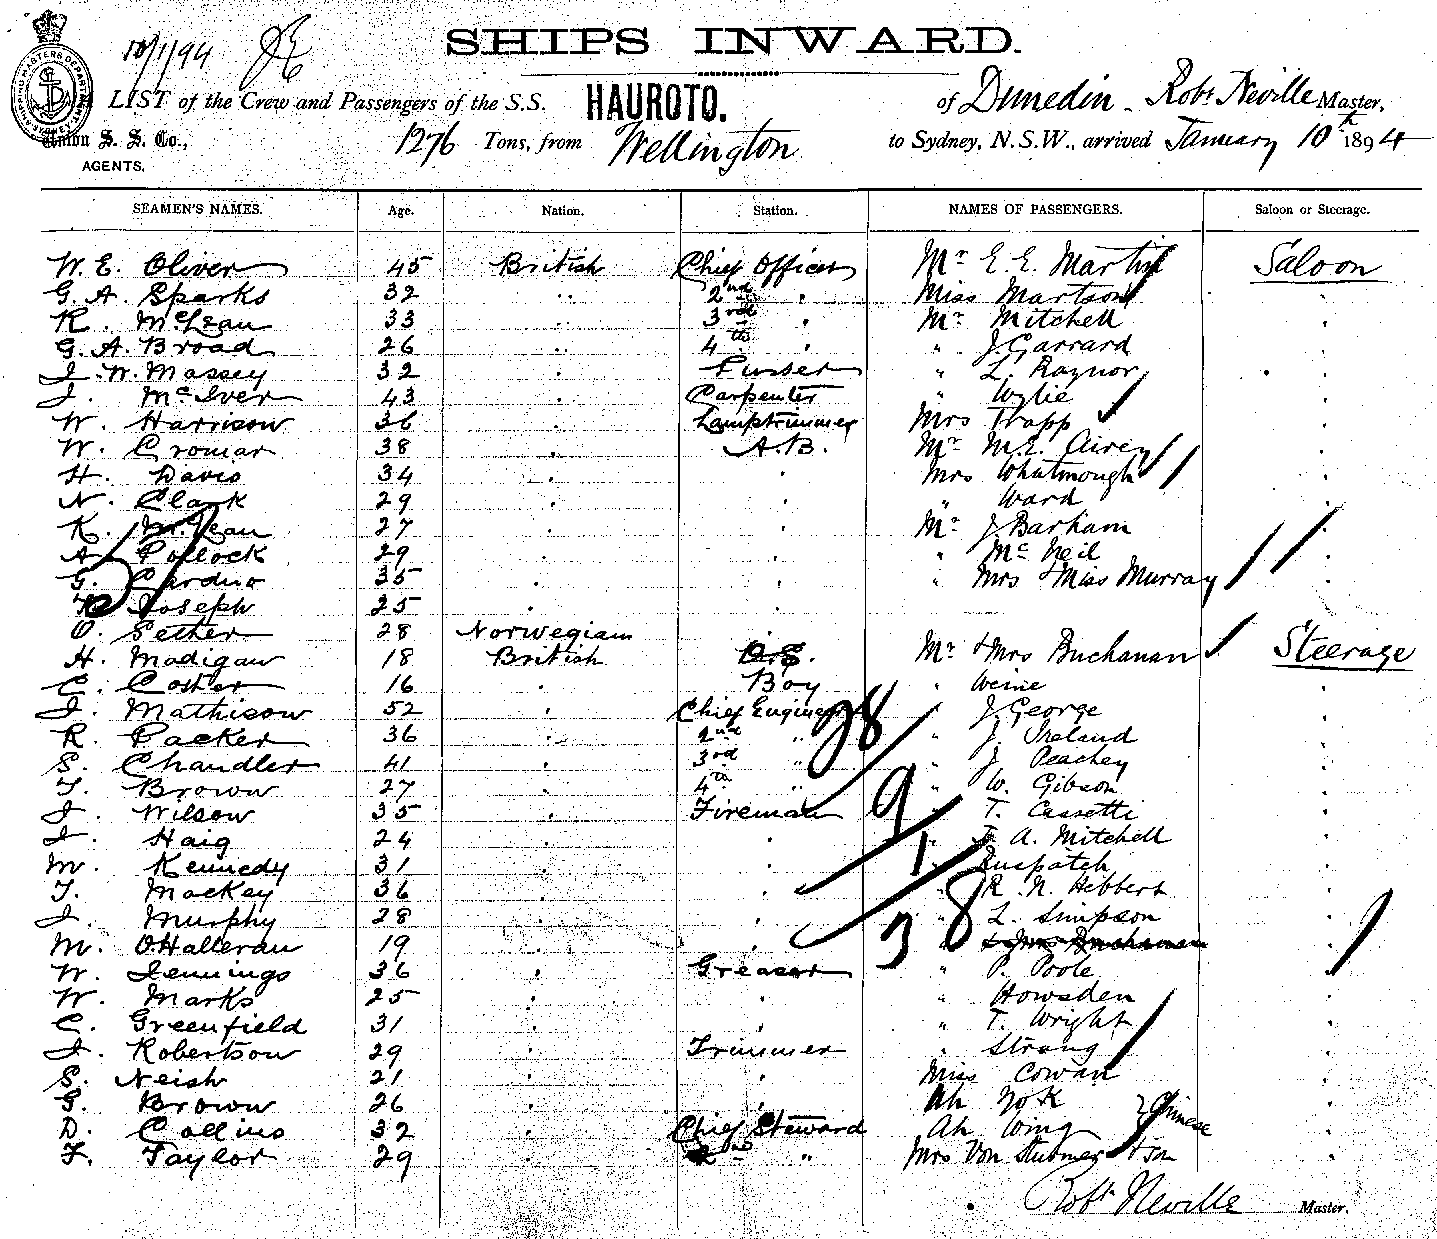 10/1/94
SHIPS INWARD.
LIST of the Crew and Passengers of the S.S. HAUROTO. of Dunedin. Robt Neville Master,
Union S. S. Co., 1276 Tons, from Wellington to Sydney, N.S.W., arrived January 10th 1894
AGENTS.
SEAMEN'S NAMES. Age. Nation. Station. NAMES OF PASSENGERS. Saloon or Steerage.
W. E. Oliver 45 British Chief Officer Mr E. E. Martin Saloon
G. A. Sparks 32 " 2nd " Miss Martson "
K. McLean 33 " 3rd " Mr Mitchell "
G. A. Broad 26 " 4th " " J. Garrard "
J. W. Massey 32 " Purser " L. Raynor "
J. McIver 43 " Carpenter " Wylie "
W. Harrison 36 " Lamptrimmer Mrs Trapp "
W. Cromar 38 " A.B. Mr M.E. Airey "
H. Davis 34 " " Mrs Whatmough "
N. Clark 29 " " " Ward "
K. McLean 27 " " Mr J. Barham "
A. Pollock 29 " " " McNeil "
G. 35 " " " Mrs & Miss Murray "
Joseph 25 " "
O. Sether 28 Norwegian "
H. Madigan 18 British O.S. Mr & Mrs Buchanan Steerage
C. Coster 16 " Boy " Weine "
J. Mathison 52 " Chief Engineer " J. George "
R. Packer 36 " 2nd " " J. Ireland "
S. Chandler 41 " 3rd " " J. Peachey "
T. Brown 27 " 4th " " W. Gibson "
J. Wilson 35 " Fireman " T. Cassetti "
J. Haig 24 " " " A. Mitchell "
M. Kennedy 31 " " "
T. Mackay 36 " " " R. N. Hebbert "
J. Murphy 28 " " " L. Simpson "
M. OHalleran 19 " " " & Mrs Buchanan "
W. Jennings 36 " Greaser " P. Poole "
W. Marks 25 " " " Howsden "
C. Greenfield 31 " " " T. Wright "
J. Robertson 29 " Trimmer " Strang "
S. Neish 21 " " Miss Cowan "
G. Brown 26 " " Ah York "
D. Collins 32 " Chief Steward Ah Wing } Chinese "
F. Taylor 29 " 2nd " Mrs Von Sturmer & Son "
Robt Neville Master.